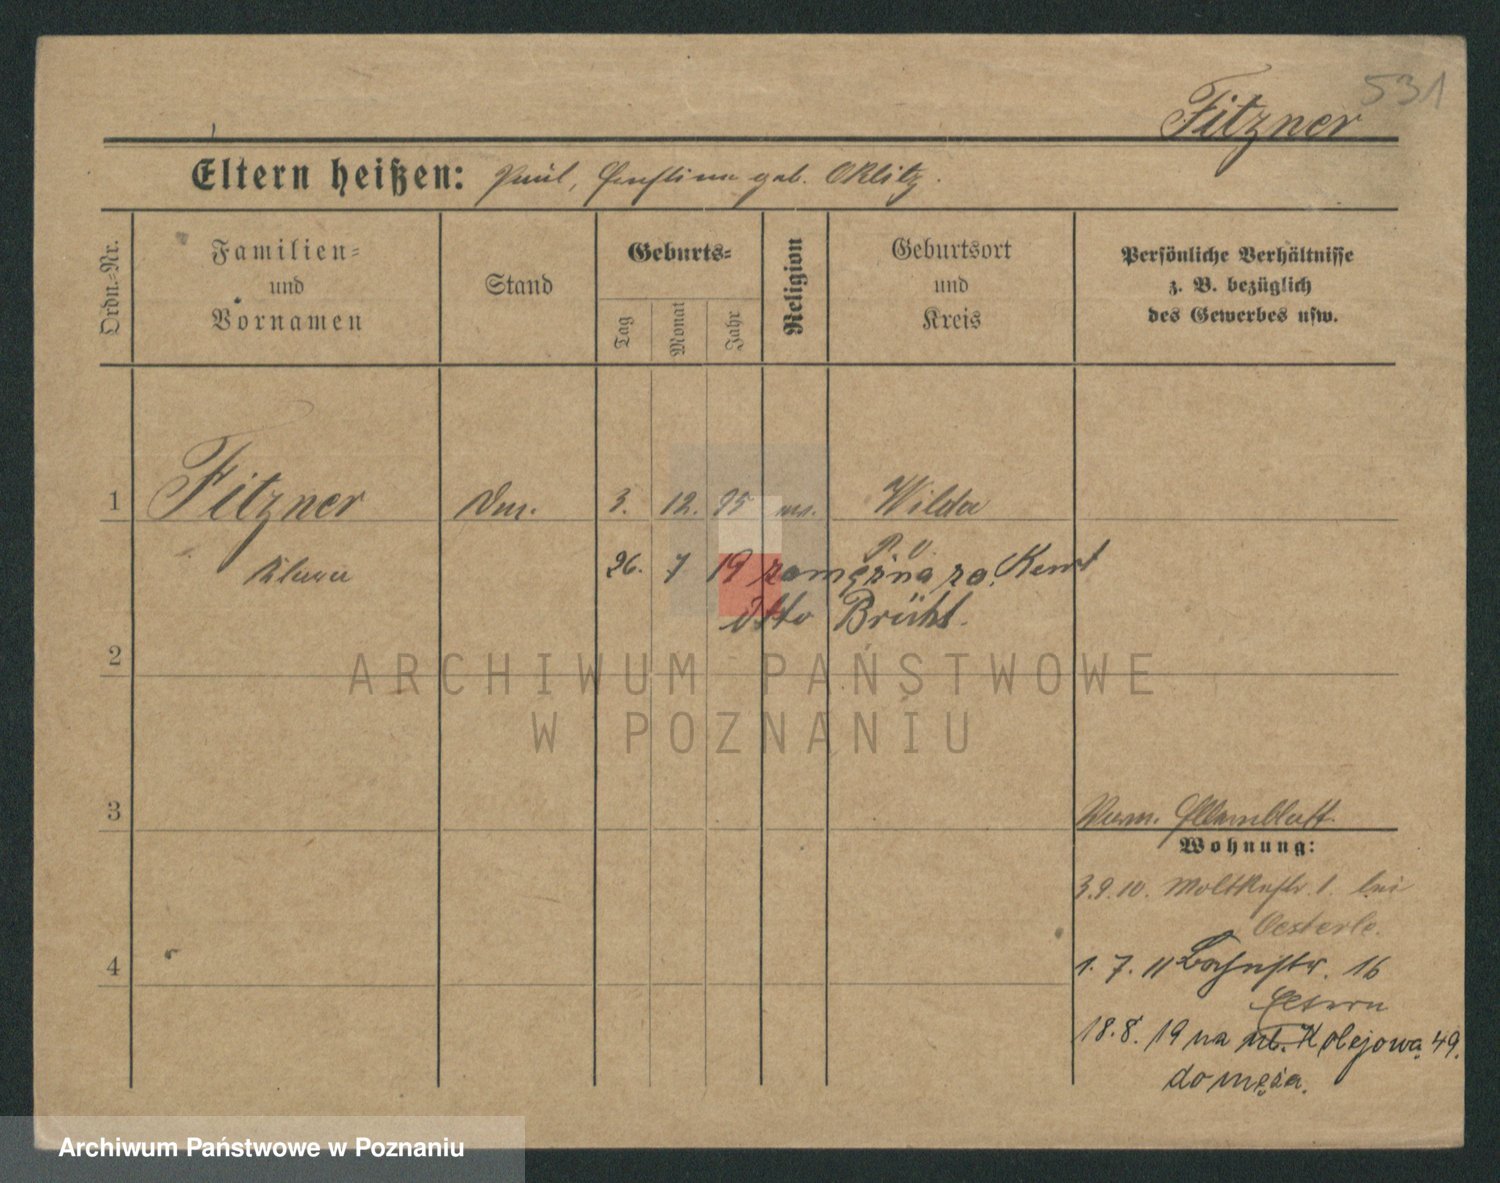 531
Fitzner
Eltern heißen: Paul, geb. Oklitz.
Ordn.-Nr.
Familien-
und
Vornamen
Stand
Geburts-
Tag
Monat
Jahr
Religion
Geburtsort
und
Kreis
Persönliche Verhältnisse
z. B. bezüglich
des Gewerbes usw.
1 Fitzner 3. 12. 95 Wilda
P. O.
Klara 26. 7 19 zamężna za
Otto Brühl.
2
3
Wohnung:
3.9.10. Moltkestr. 1. bei
Oesterle.
4
1. 7. 11 Bahnstr. 16
Eltern
18. 8. 19 na ul. Kolejowa 49.
do męża.
ARCHIWUM PAŃSTWOWE
W POZNANIU
Archiwum Państwowe w Poznaniu